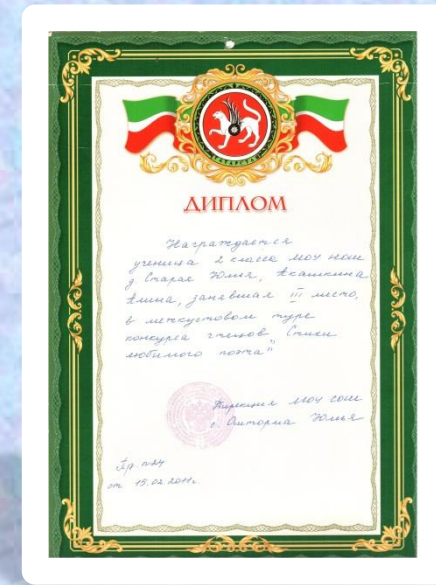 ДИПЛОМ
Награждается
ученица 2 класса МОУ НОШ
д. Старая Юмья, Акашкина
Алина, занявшая III место,
в межкустовом туре
конкурса чтецов „Стихи
любимого поэта"
Дирекция МОУ СОШ
с. Ошторма Юмья
Пр. №24
от 15.02.2011г.